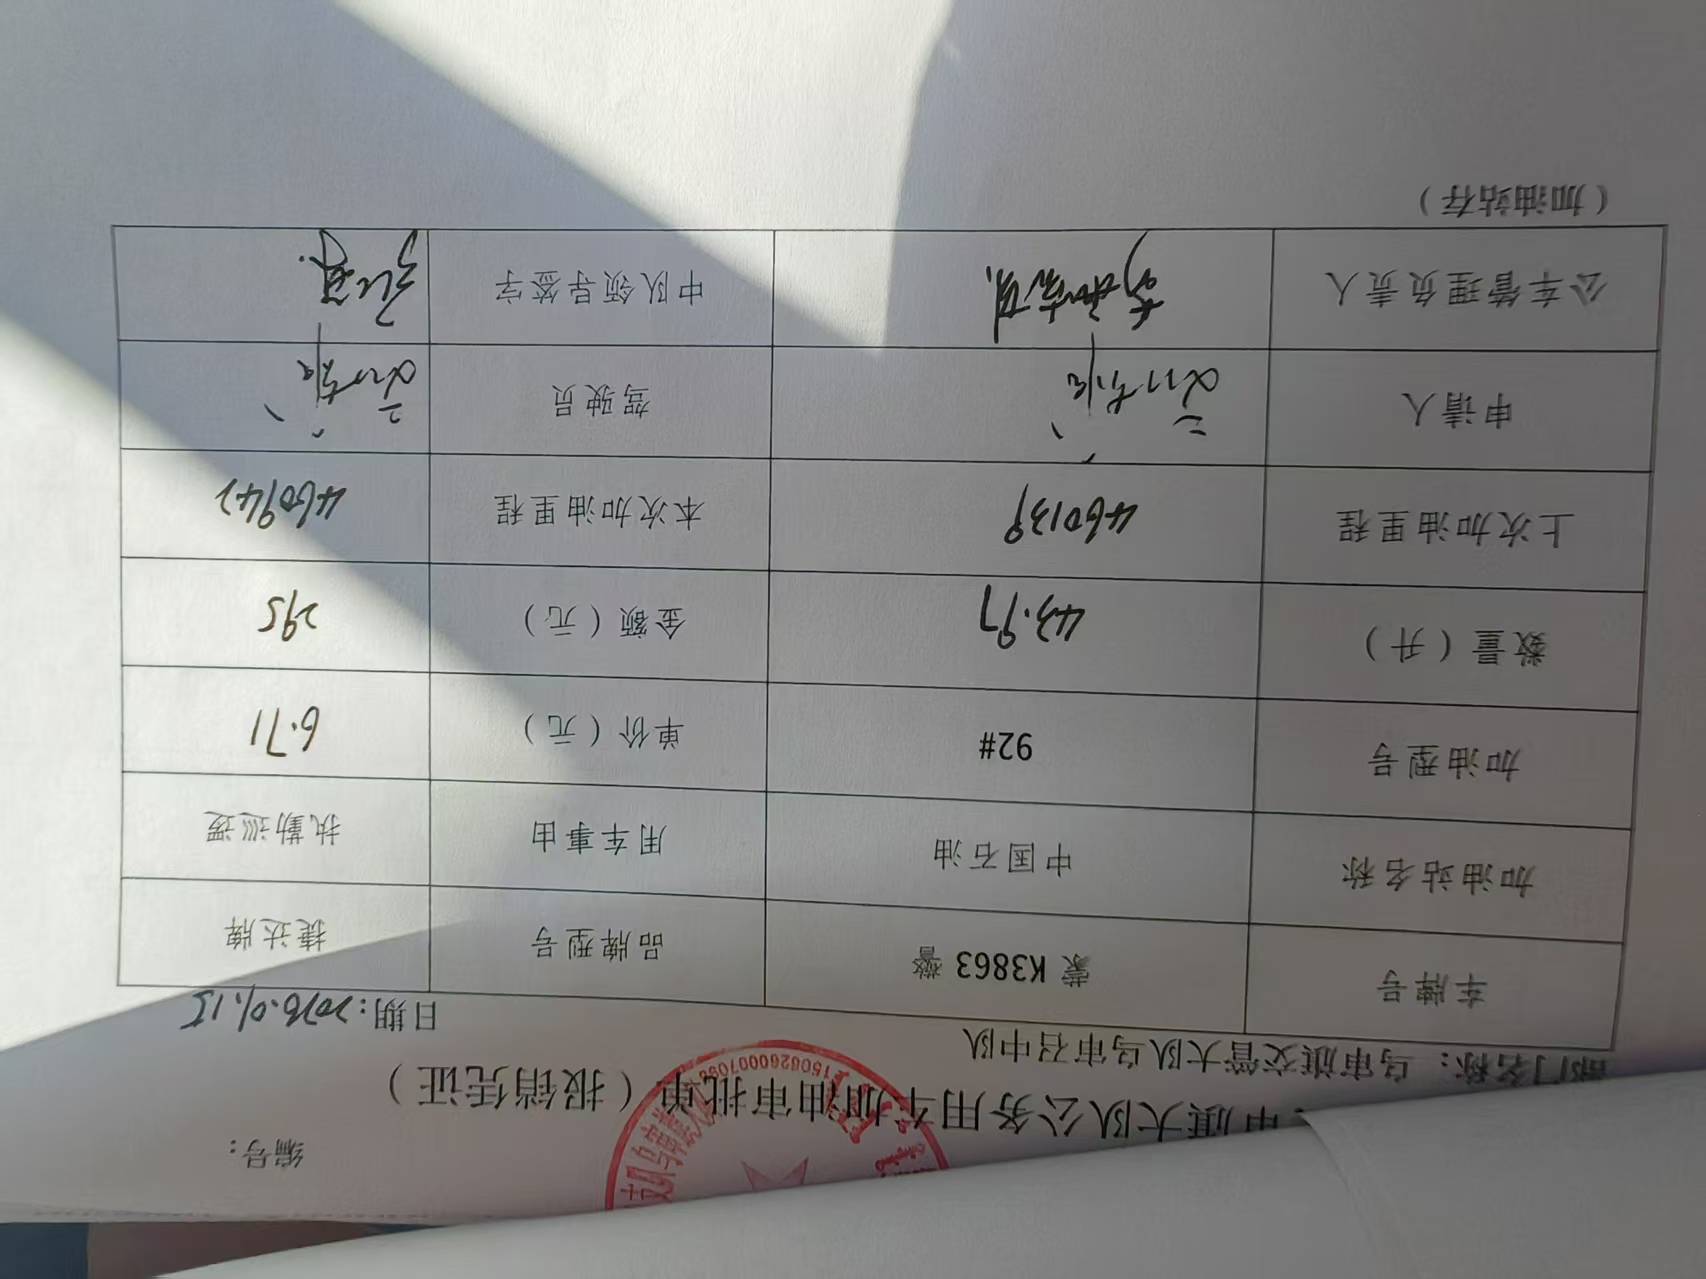 编号：
审旗大队公务用车加油审批单（报销凭证）
部门名称：乌审旗交管大队乌审召中队 日期：2026.01.15
车牌号 蒙 K3863 警 品牌型号 捷达牌
加油站名称 中国石油 用车事由 执勤巡逻
加油型号 92# 单价（元） 6.71
数量（升） 43.97 金额（元） 295
上次加油里程 460139 本次加油里程 460942
申请人 驾驶员
公车管理负责人 中队领导签字
（加油站存）